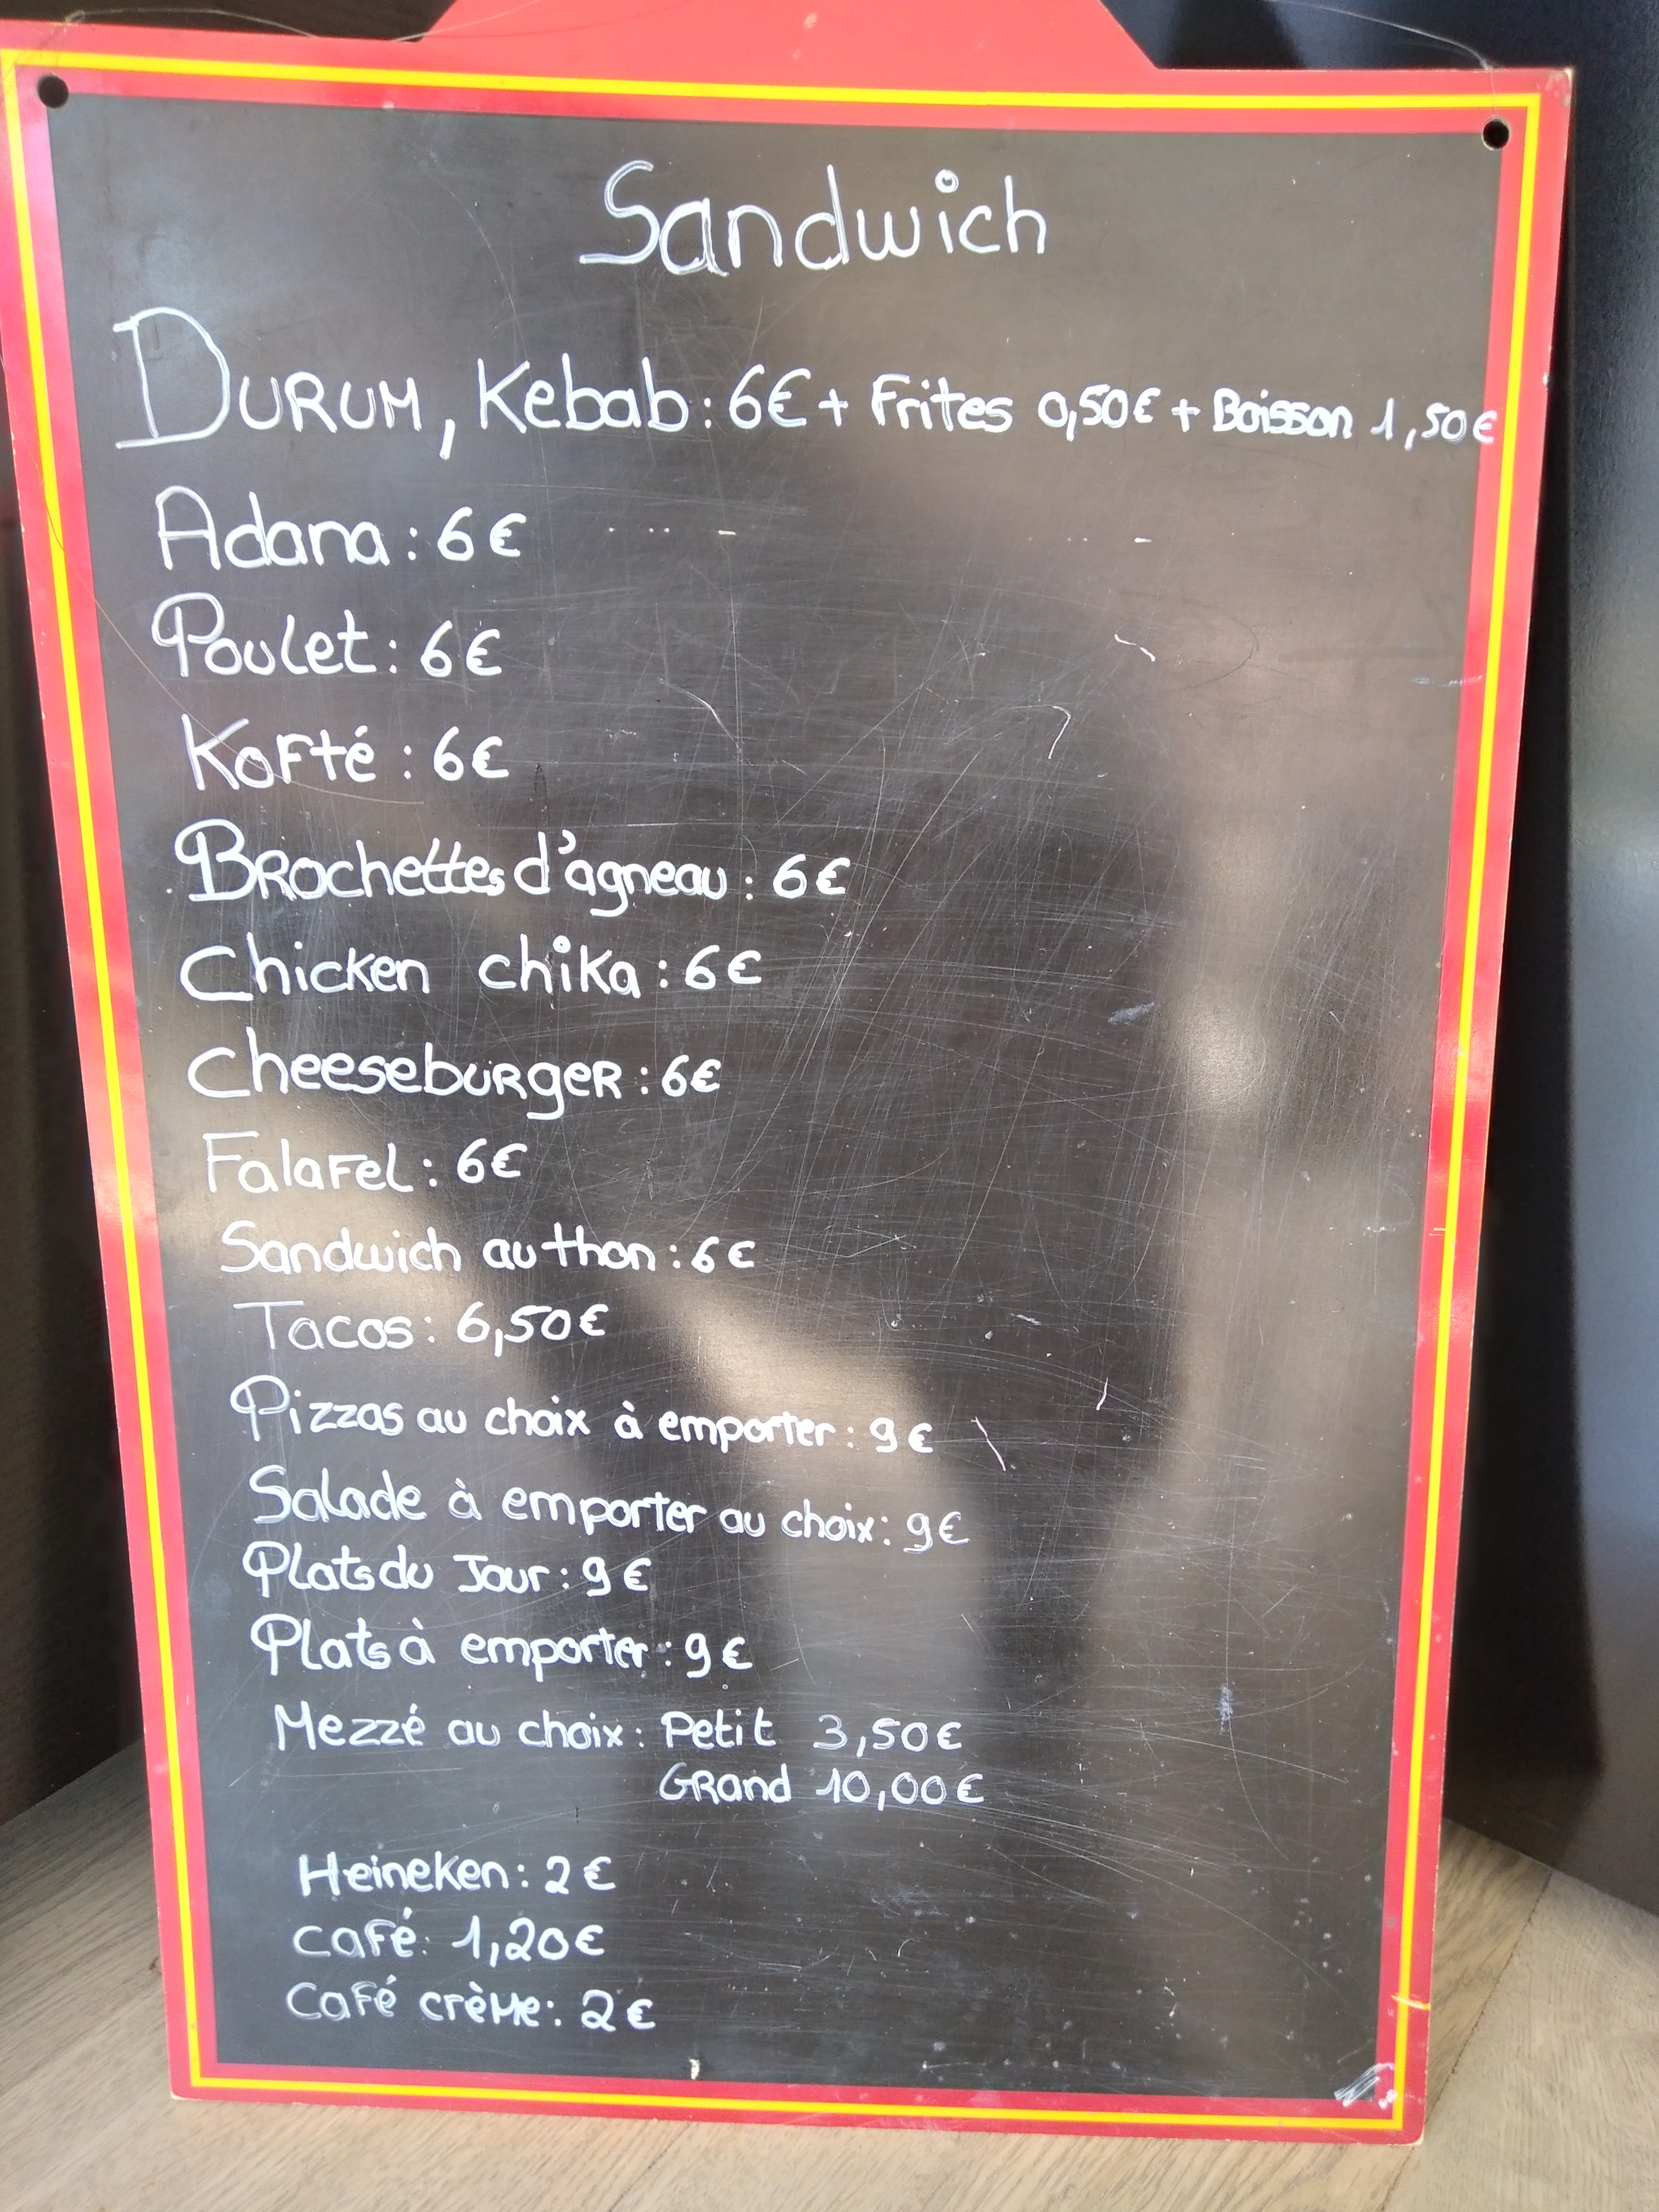 Sandwich
DURUM, Kebab : 6€ + Frites 0,50€ + Boisson 1,50€
Adana : 6€
Poulet : 6€
Kofté : 6€
Brochettes d'agneau : 6€
Chicken chika : 6€
Cheeseburger : 6€
Falafel : 6€
Sandwich au thon : 6€
Tacos : 6,50€
Pizzas au choix à emporter : 9€
Salade à emporter au choix : 9€
Plats du Jour : 9€
Plats à emporter : 9€
Mezzé au choix : Petit 3,50€
Grand 10,00€
Heineken : 2€
Café : 1,20€
Café crème : 2€